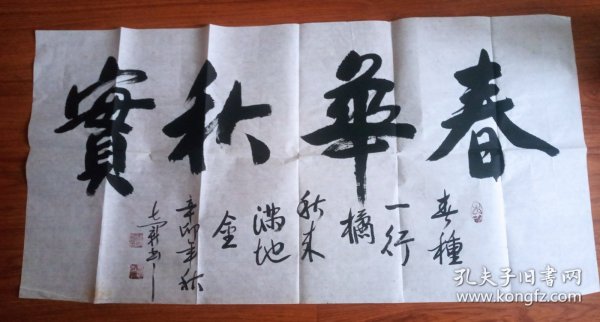 春華秋實
春種
一行
橘
秋来
满地
金
辛卯年秋
孔夫子旧书网
www.kongfz.com